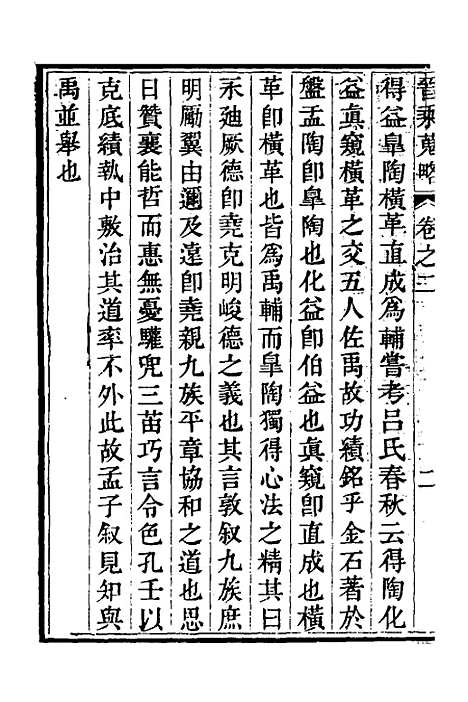 晉乘蒐略 卷之二 二
得益皐陶橫革直成爲輔嘗考吕氏春秋云得陶化
益眞窺橫革之交五人佐禹故功績銘乎金石著於
盤盂陶卽皐陶也化益卽伯益也眞窺卽直成也橫
革卽橫革也皆爲禹輔而皐陶獨得心法之精其曰
永廸厥德卽堯克明峻德之義也其言敦叙九族庶
明勵翼由邇及遠卽堯親九族平章協和之道也思
日贊襄能哲而惠無憂驩兜三苗巧言令色孔壬以
克底績執中敷治其道率不外此故孟子叙見知與
禹並舉也